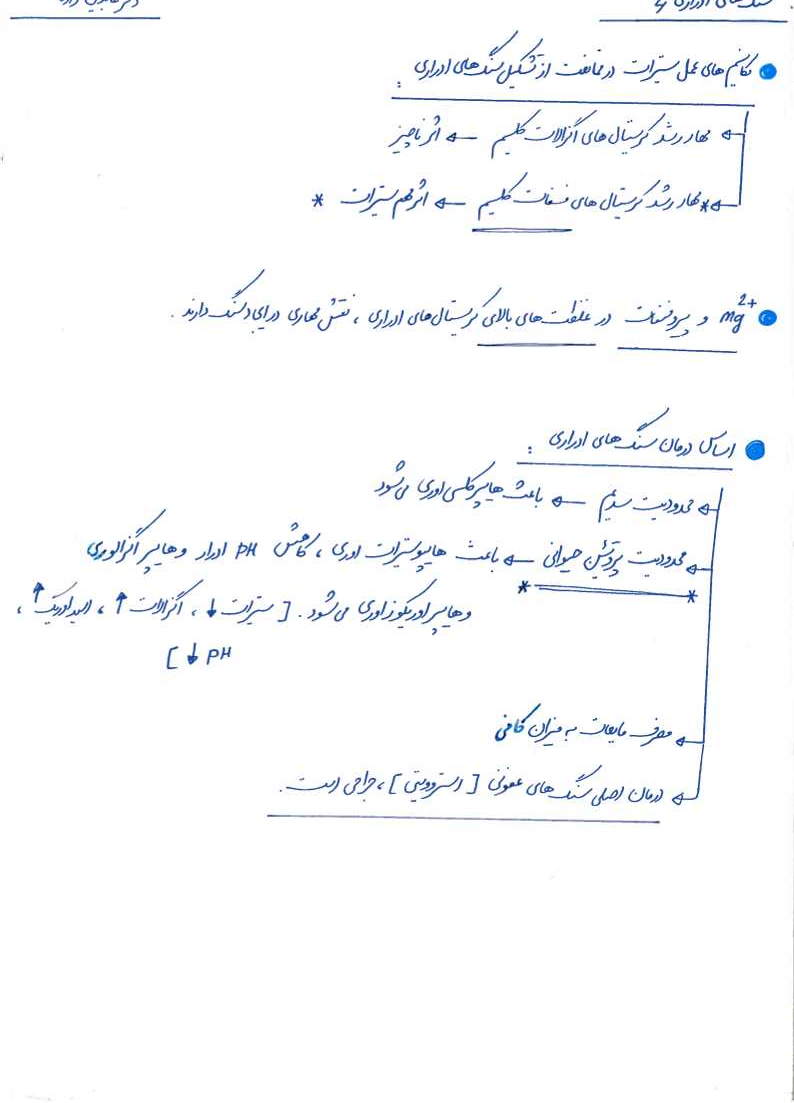 سنگ های ادراری 4
مکانیسم های عمل سیترات در ممانعت از تشکیل سنگ های ادراری :
← مهار رشد کریستال های اگزالات کلسیم ← اثر ناچیز
←* مهار رشد کریستال های فسفات کلسیم ← اثر مهم سیترات *
Mg2+ و پیروفسفات در غلظت های بالای کریستال های ادراری ، نقش مهاری در ایجاد سنگ دارند .
اساس درمان سنگ های ادراری :
← محدودیت سدیم ← باعث هایپرکلسی اوری می شود
← محدودیت پروتئین حیوانی ← باعث هایپوسیترات اوری ، کاهش PH ادرار و هایپر اگزالوری
* *
و هایپر اوریکوزاوری می شود . [ سیترات ↓ ، اگزالات ↑ ، اسید اوریک ↑ ،
PH ↓ ]
← مصرف مایعات به میزان کافی
← درمان اصلی سنگ های عفونی [ استروویتی ] ، جراحی است .